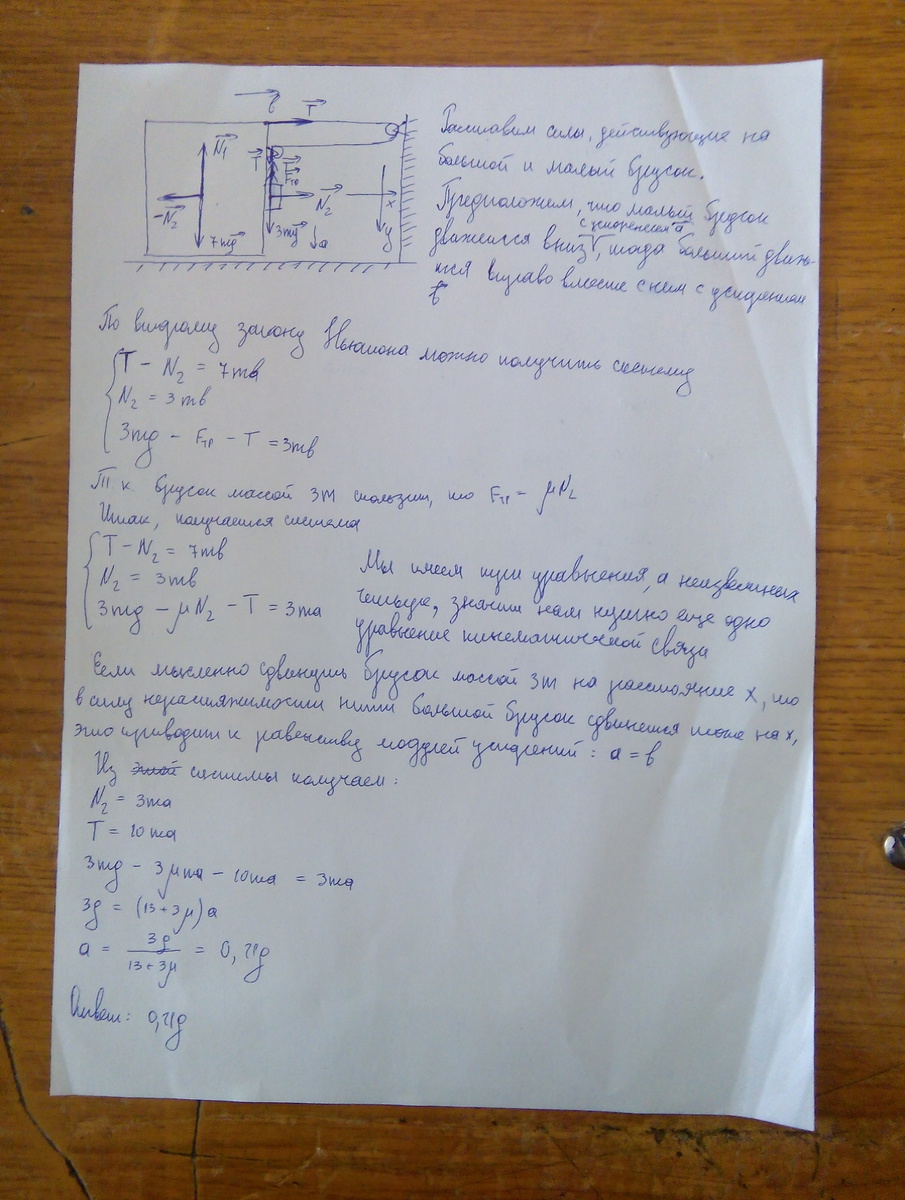 b
T
Расставим силы, действующие на
N₁
большой и малый брусок.
T
T
Fтр
Предположим, что малый брусок
-N₂
N₂
x
с ускорением a
7mg
3mg
a
y
движется вниз, тогда больший движе-
тся вправо вместе с ним с ускорением
b
По второму закону Ньютона можно получить систему
T - N₂ = 7mb
N₂ = 3mb
3mg - Fтр - T = 3mb
Т. к. брусок массой 3m скользит, то Fтр = μN₂
Итак, получается система
T - N₂ = 7mb
N₂ = 3mb
3mg - μN₂ - T = 3ma
Мы имеем три уравнения, а неизвестных
четыре, значит нам нужно еще одно
уравнение кинематической связи
Если мысленно сдвинуть брусок массой 3m на расстояние x, то
в силу нерастяжимости нити большой брусок сдвинется тоже на x,
это приводит к равенству модулей ускорений: a = b
Из системы получаем:
N₂ = 3ma
T = 10ma
3mg - 3μma - 10ma = 3ma
3g = (13+3μ)a
a = 3g / (13+3μ) = 0,21g
Ответ: 0,21g